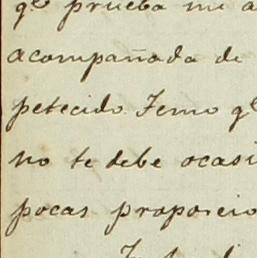 qe prueba mi a
acompañada de
petecido. Temo qe
no te debe ocasi
pocas proporcio